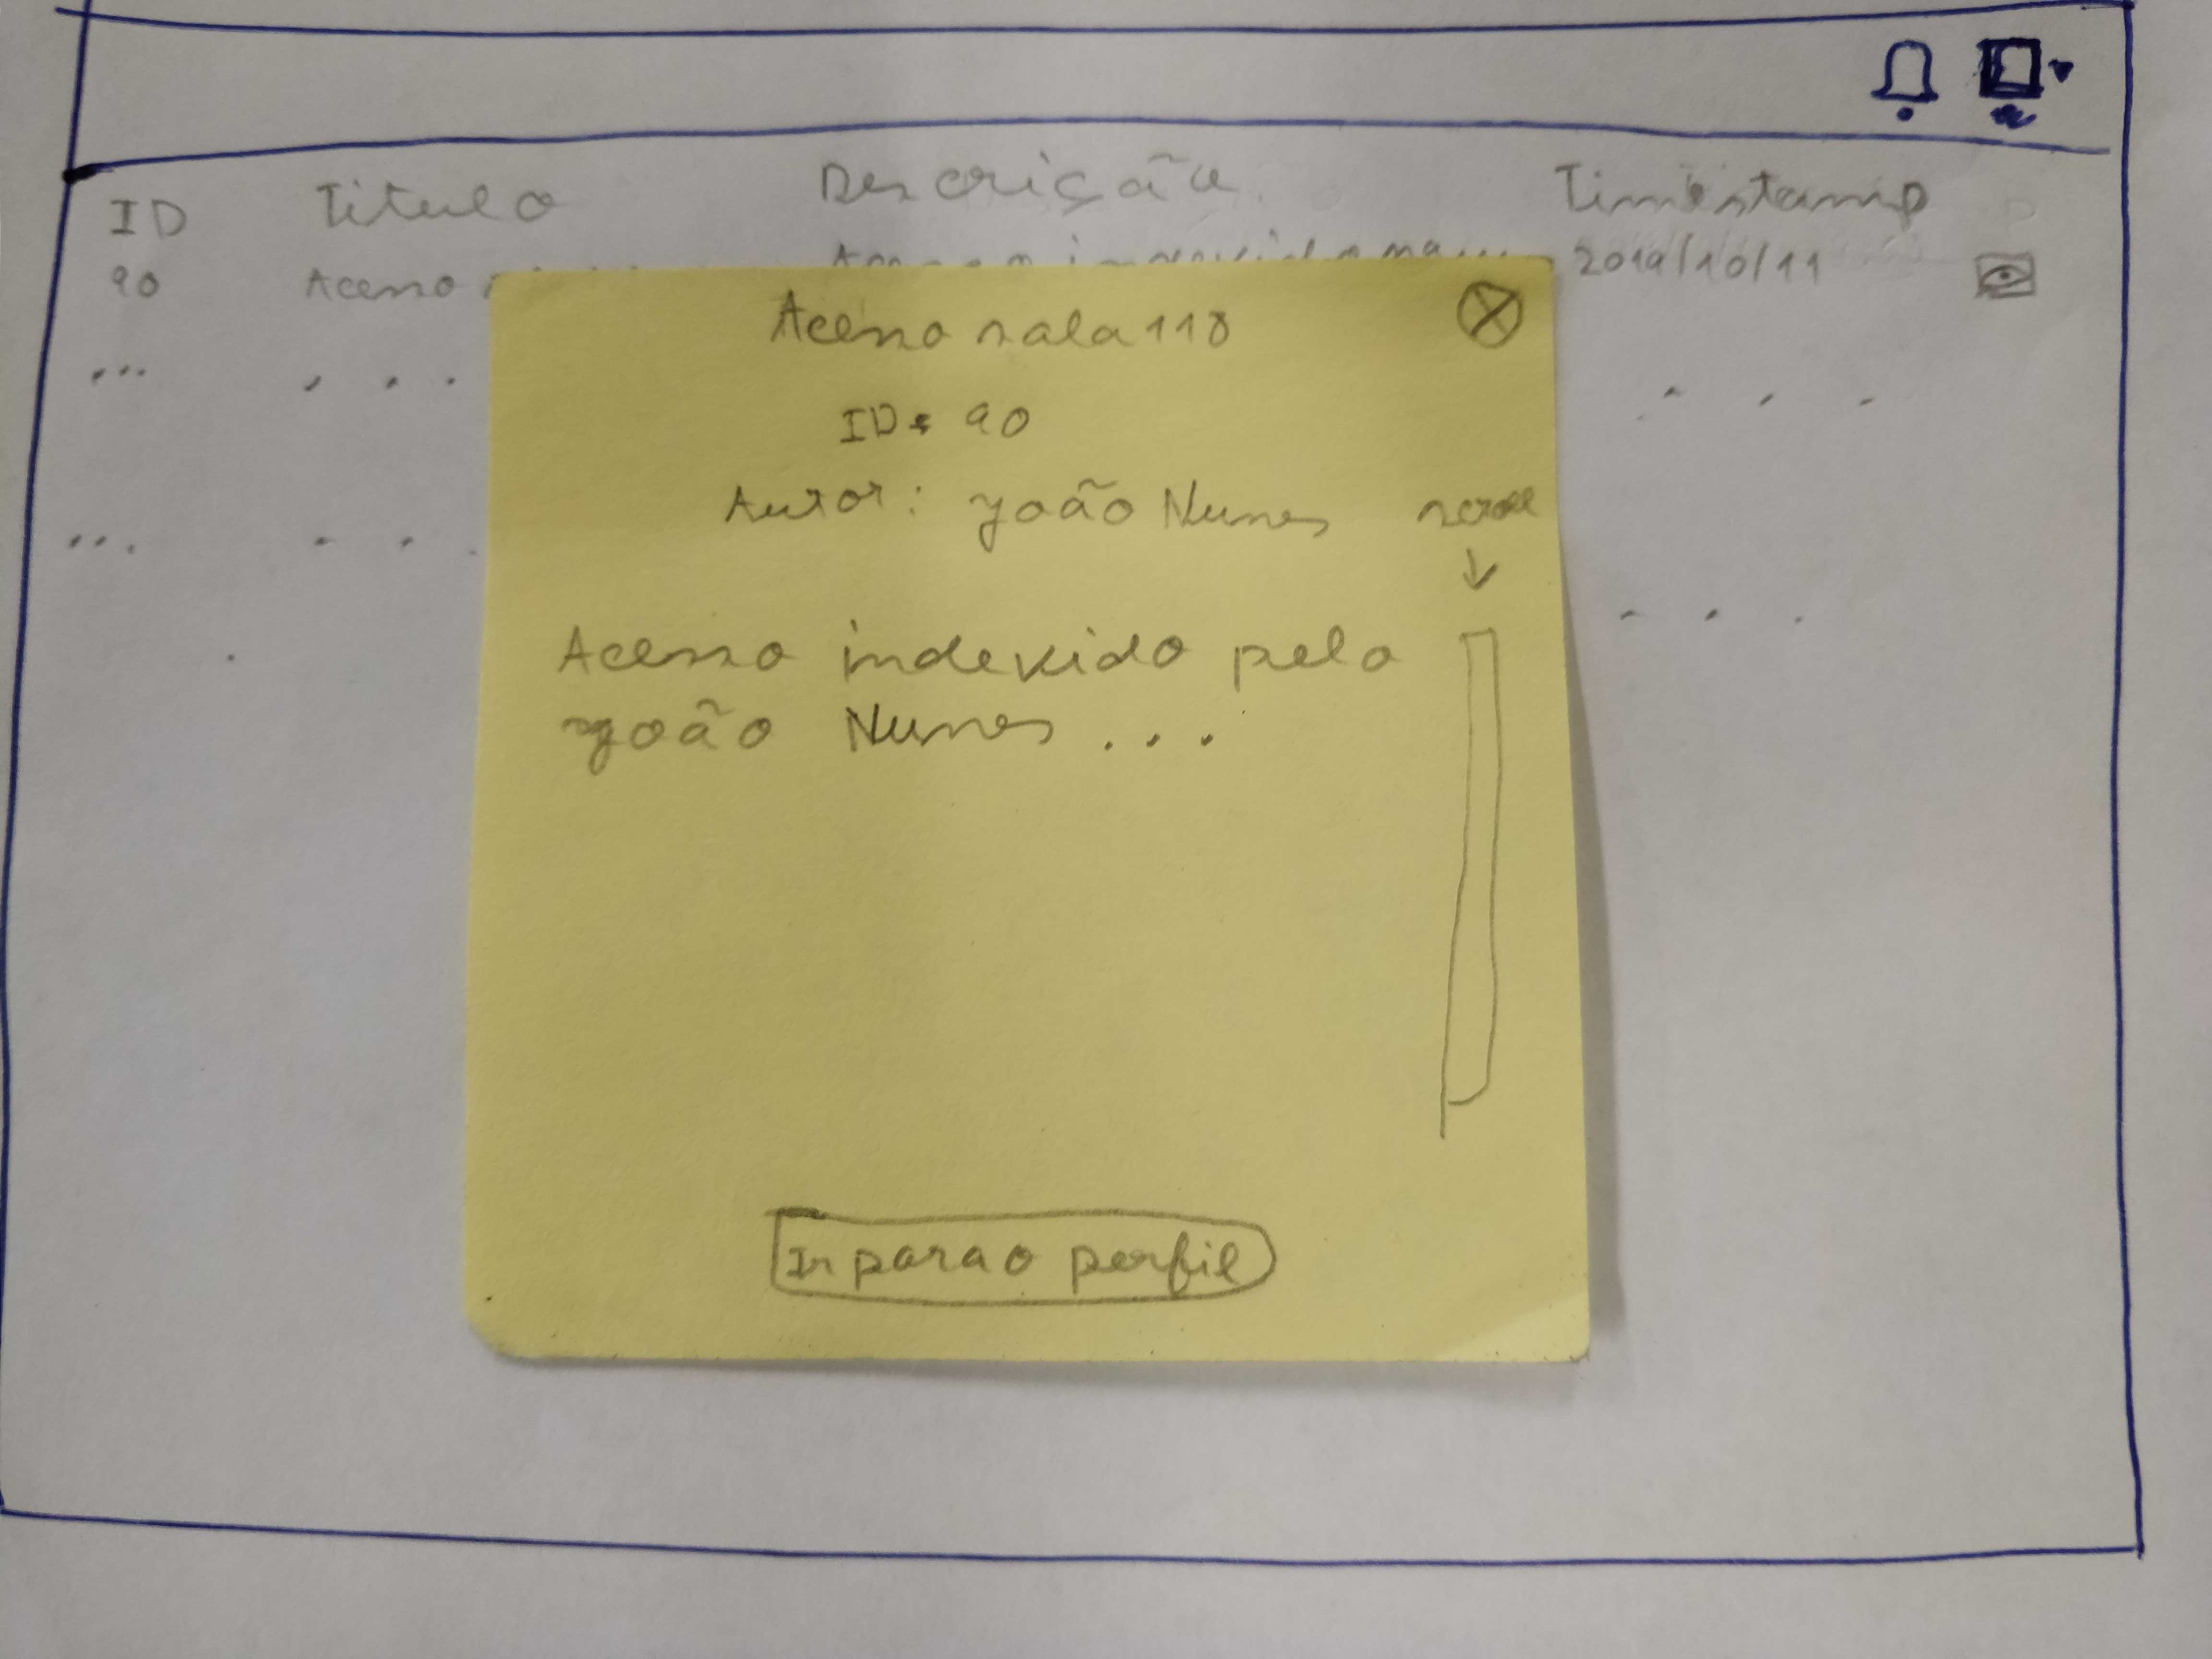 ID Titulo Descrição Timestamp
90 Acesso 2019/10/11
... ... ...
... ... ...
Acesso sala 118
ID: 90
Autor: João Nunes
scroll
Acesso indevido pelo
João Nunes ...
Ir para o perfil